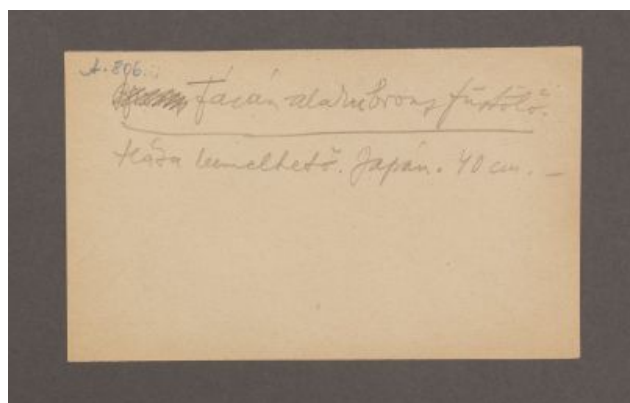 A. 806.
Fácán alakú bronz füstölő.
Háta kiemelhető. Japán. 40 cm. —